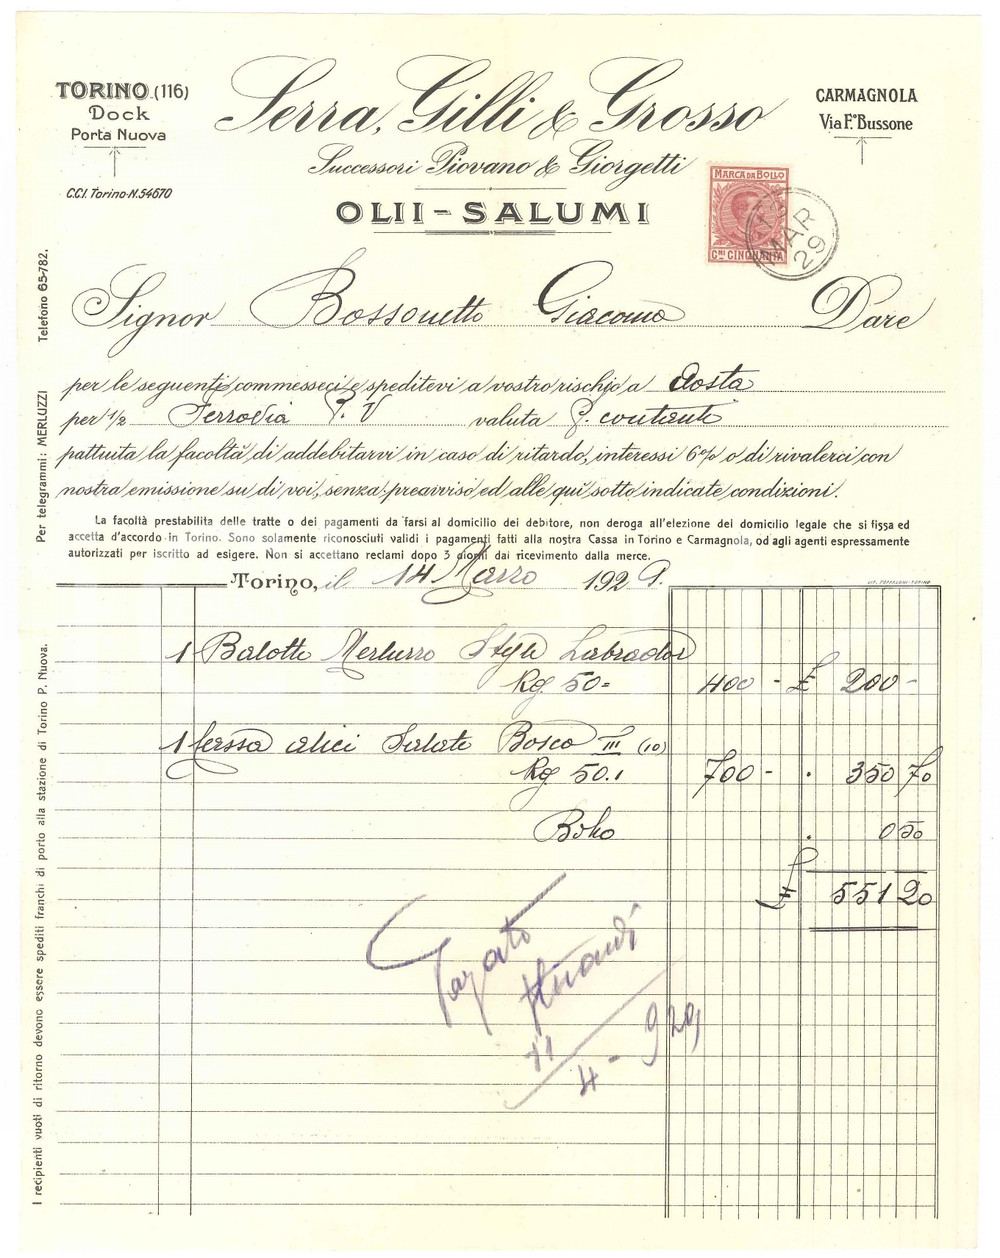 TORINO (116)
Dock
Porta Nuova
C.C.I. Torino-N.54670
Serra, Gilli & Grosso
Successori Piovano & Giorgetti
OLII - SALUMI
CARMAGNOLA
Via F.co Bussone
MARCA DA BOLLO
C.mi CINQUANTA
MAR
29
Telefono 65-782.
Per telegrammi: MERLUZZI
I recipienti vuoti di ritorno devono essere spediti franchi di porto alla stazione di Torino P. Nuova.
Signor Bossonetto Giacomo Dare
per le seguenti commesseci e speditevi a vostro rischio a Aosta
per 1/2 Ferrovia P. V valuta p. contanti
pattuita la facoltà di addebitarvi in caso di ritardo, interessi 6% o di rivalerci con
nostra emissione su di voi, senza preavviso ed alle qui sotto indicate condizioni.
La facoltà prestabilita delle tratte o dei pagamenti da farsi al domicilio del debitore, non deroga all'elezione del domicilio legale che si fissa ed
accetta d'accordo in Torino. Sono solamente riconosciuti validi i pagamenti fatti alla nostra Cassa in Torino e Carmagnola, od agli agenti espressamente
autorizzati per iscritto ad esigere. Non si accettano reclami dopo 3 giorni dal ricevimento della merce.
Torino, il 14 Marzo 1929.
1 Balotto Merluzzo Style Labrador
Kg 50= 400 - £ 200 -
1 Cassa alici Salate Bosco III (10)
Kg 50.1 700 - . 350 70
Bollo . 0 50
£ 551 20
Pagato
11
4 - 929